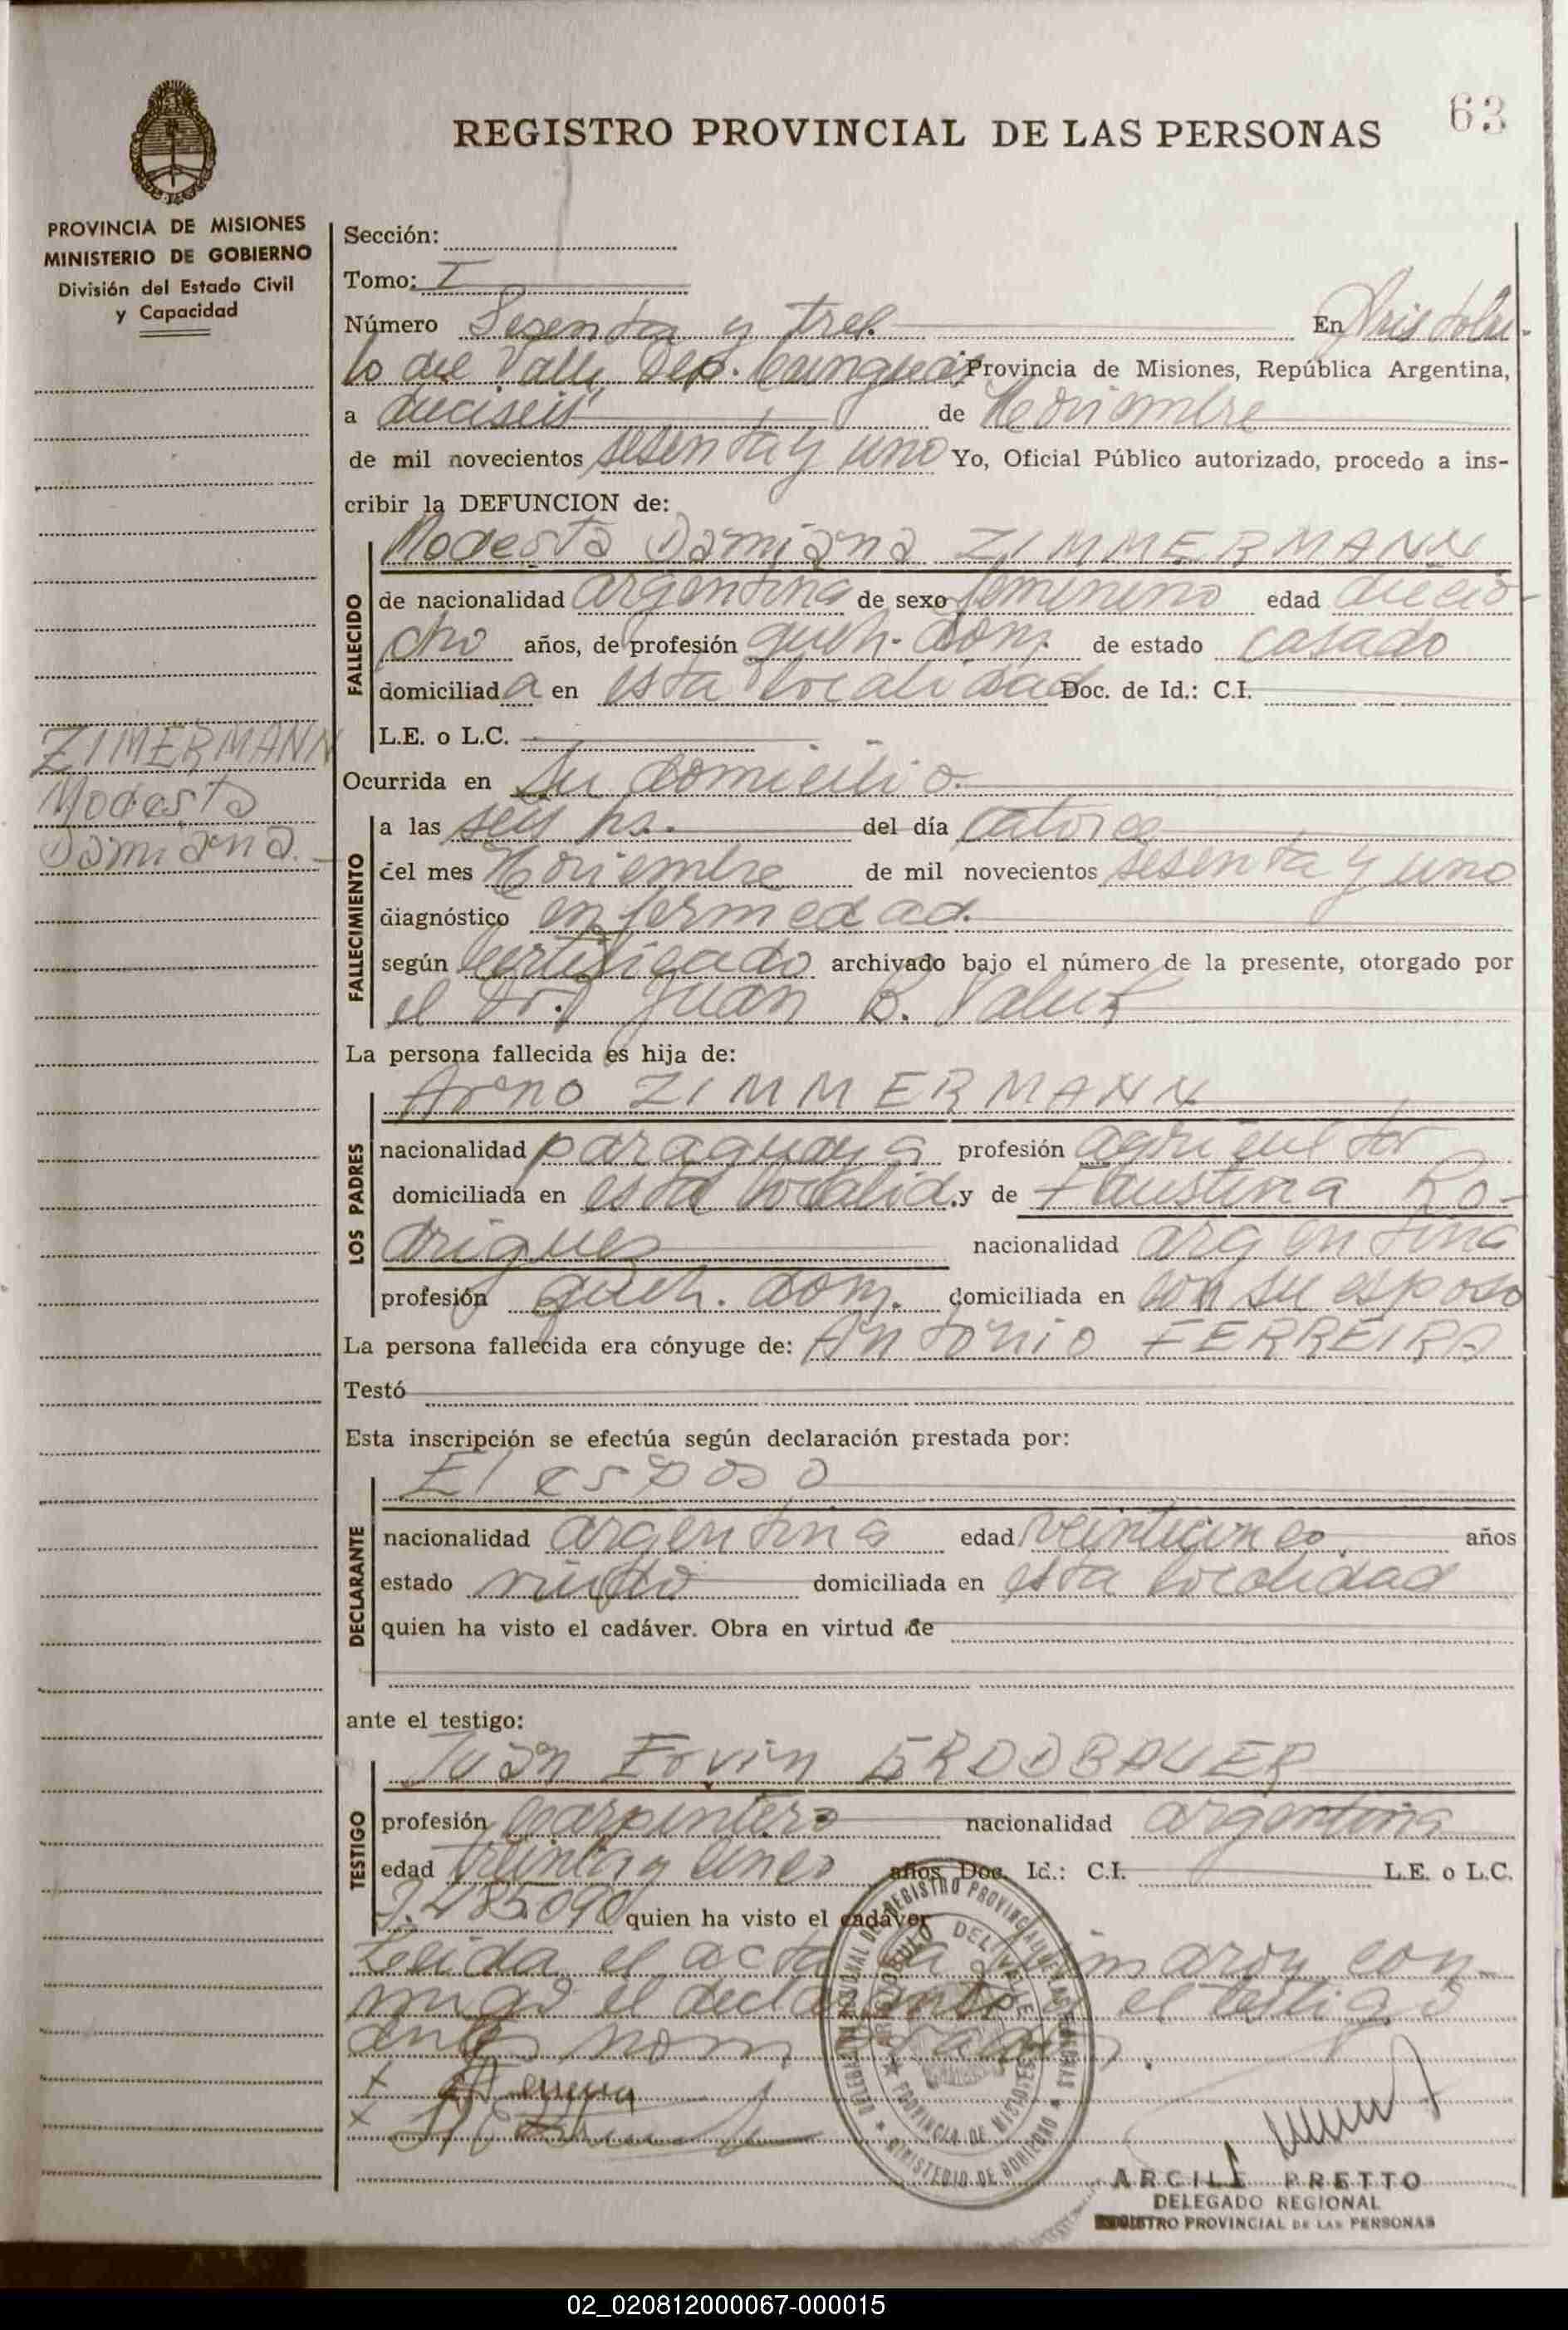 63
REGISTRO PROVINCIAL DE LAS PERSONAS
PROVINCIA DE MISIONES
MINISTERIO DE GOBIERNO
División del Estado Civil
y Capacidad
ZIMERMANN
Modesta
Damiana.
Sección:
Tomo: I
Número Sesenta y tres. En Aristobu-
lo del Valle, Dep. Cainguas Provincia de Misiones, República Argentina,
a dieciseis de Noviembre
de mil novecientos sesenta y uno Yo, Oficial Público autorizado, procedo a ins-
cribir la DEFUNCION de:
Modesta Damiana ZIMMERMANN
FALLECIDO
de nacionalidad argentina de sexo femenino edad diecio-
cho años, de profesión queh. dom. de estado casado
domiciliada en esta localidad Doc. de Id.: C.I.
L.E. o L.C.
Ocurrida en su domicilio.
FALLECIMIENTO
a las seis hs. del día catorce
del mes Noviembre de mil novecientos sesenta y uno
diagnóstico enfermedad.
según Certificado archivado bajo el número de la presente, otorgado por
el Dr. Juan B.
La persona fallecida es hija de:
LOS PADRES
Arno ZIMMERMANN
nacionalidad paraguaya profesión agricultor
domiciliada en esta localid. y de Faustina Ro-
drigues nacionalidad argentina
profesión queh. dom. domiciliada en con su esposo
La persona fallecida era cónyuge de: Antonio FERREIRA
Testó
Esta inscripción se efectúa según declaración prestada por:
DECLARANTE
El esposo
nacionalidad argentina edad veinticinco años
estado viudo domiciliada en esta localidad
quien ha visto el cadáver. Obra en virtud de
ante el testigo:
TESTIGO
Juan Ervin ERDDBAUER
profesión Carpintero nacionalidad argentina
edad treinta y cinco años Doc. Id.: C.I. L.E. o L.C.
7.485.090 quien ha visto el cadáver
Leida el acta la firmaron con-
migo el declarante y el testigo
antes nombrados.
ARCILE PRETTO
DELEGADO REGIONAL
REGISTRO PROVINCIAL DE LAS PERSONAS
02_020812000067-000015